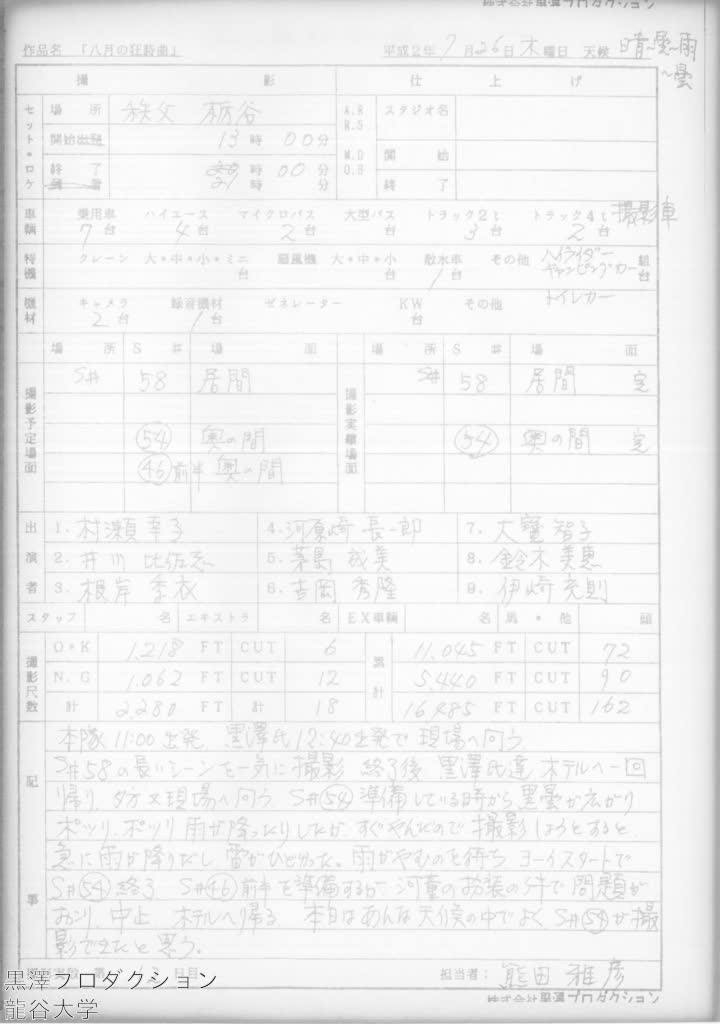 株式会社黒澤プロダクション
作品名 「八月の狂詩曲」 平成2年 7月26日木曜日 天候 晴~曇~雨
~曇
撮影 仕上げ
セット・ロケ 場所 秩父 栃谷 A.R R.S スタジオ名
開始出発 13時00分
M.D D.B 開始
終了 21時00分 終了
車輌 乗用車 7台 ハイエース 4台 マイクロバス 2台 大型バス 台 トラック2t 3台 トラック4t 2台 撮影車
特機 クレーン 大・中・小・ミニ 台 扇風機 大・中・小 台 散水車 1台 その他 ハイライダー キャンピングカー 組 台
機材 キャメラ 2台 録音機材 1台 ゼネレーター KW 台 その他 トイレカー
場所 S# 場面 場所 S# 場面
撮影予定場面 撮影実績場面
S# 58 居間 S# 58 居間 完
54 奥の間 54 奥の間 完
46 前半 奥の間
出演者
1. 村瀬幸子 4. 河原崎長一郎 7. 大寶智子
2. 井川比佐志 5. 茅島成美 8. 鈴木美恵
3. 根岸季衣 6. 吉岡秀隆 9. 伊崎充則
スタッフ 名 エキストラ 名 EX車輌 名 馬・他 頭
撮影尺数 累計
O・K 1,218 FT CUT 6 11,045 FT CUT 72
N.G 1,062 FT CUT 12 5,440 FT CUT 90
計 2,280 FT 計 18 16,485 FT CUT 162
記事
本隊11:00出発、黒澤氏12:40出発で現場へ向う
S#58の長いシーンを一気に撮影 終了後 黒澤氏達ホテルへ一回
帰り、夕方又現場へ向う。S#54準備している時から黒雲が広がり
ポツリ、ポツリ雨が降ったりしたが、すぐやんだので撮影しようとすると、
急に雨が降りだし 雷がひどかった。雨がやむのを待ち ヨーイスタートで
S#54終了 S#46前半を準備するが、河童の扮装の件で問題が
おこり、中止 ホテルへ帰る 本日はあんな天候の中でよく S#54が撮
影できたと思う。
日目 担当者: 熊田雅彦
株式会社黒澤プロダクション
黒澤プロダクション
龍谷大学